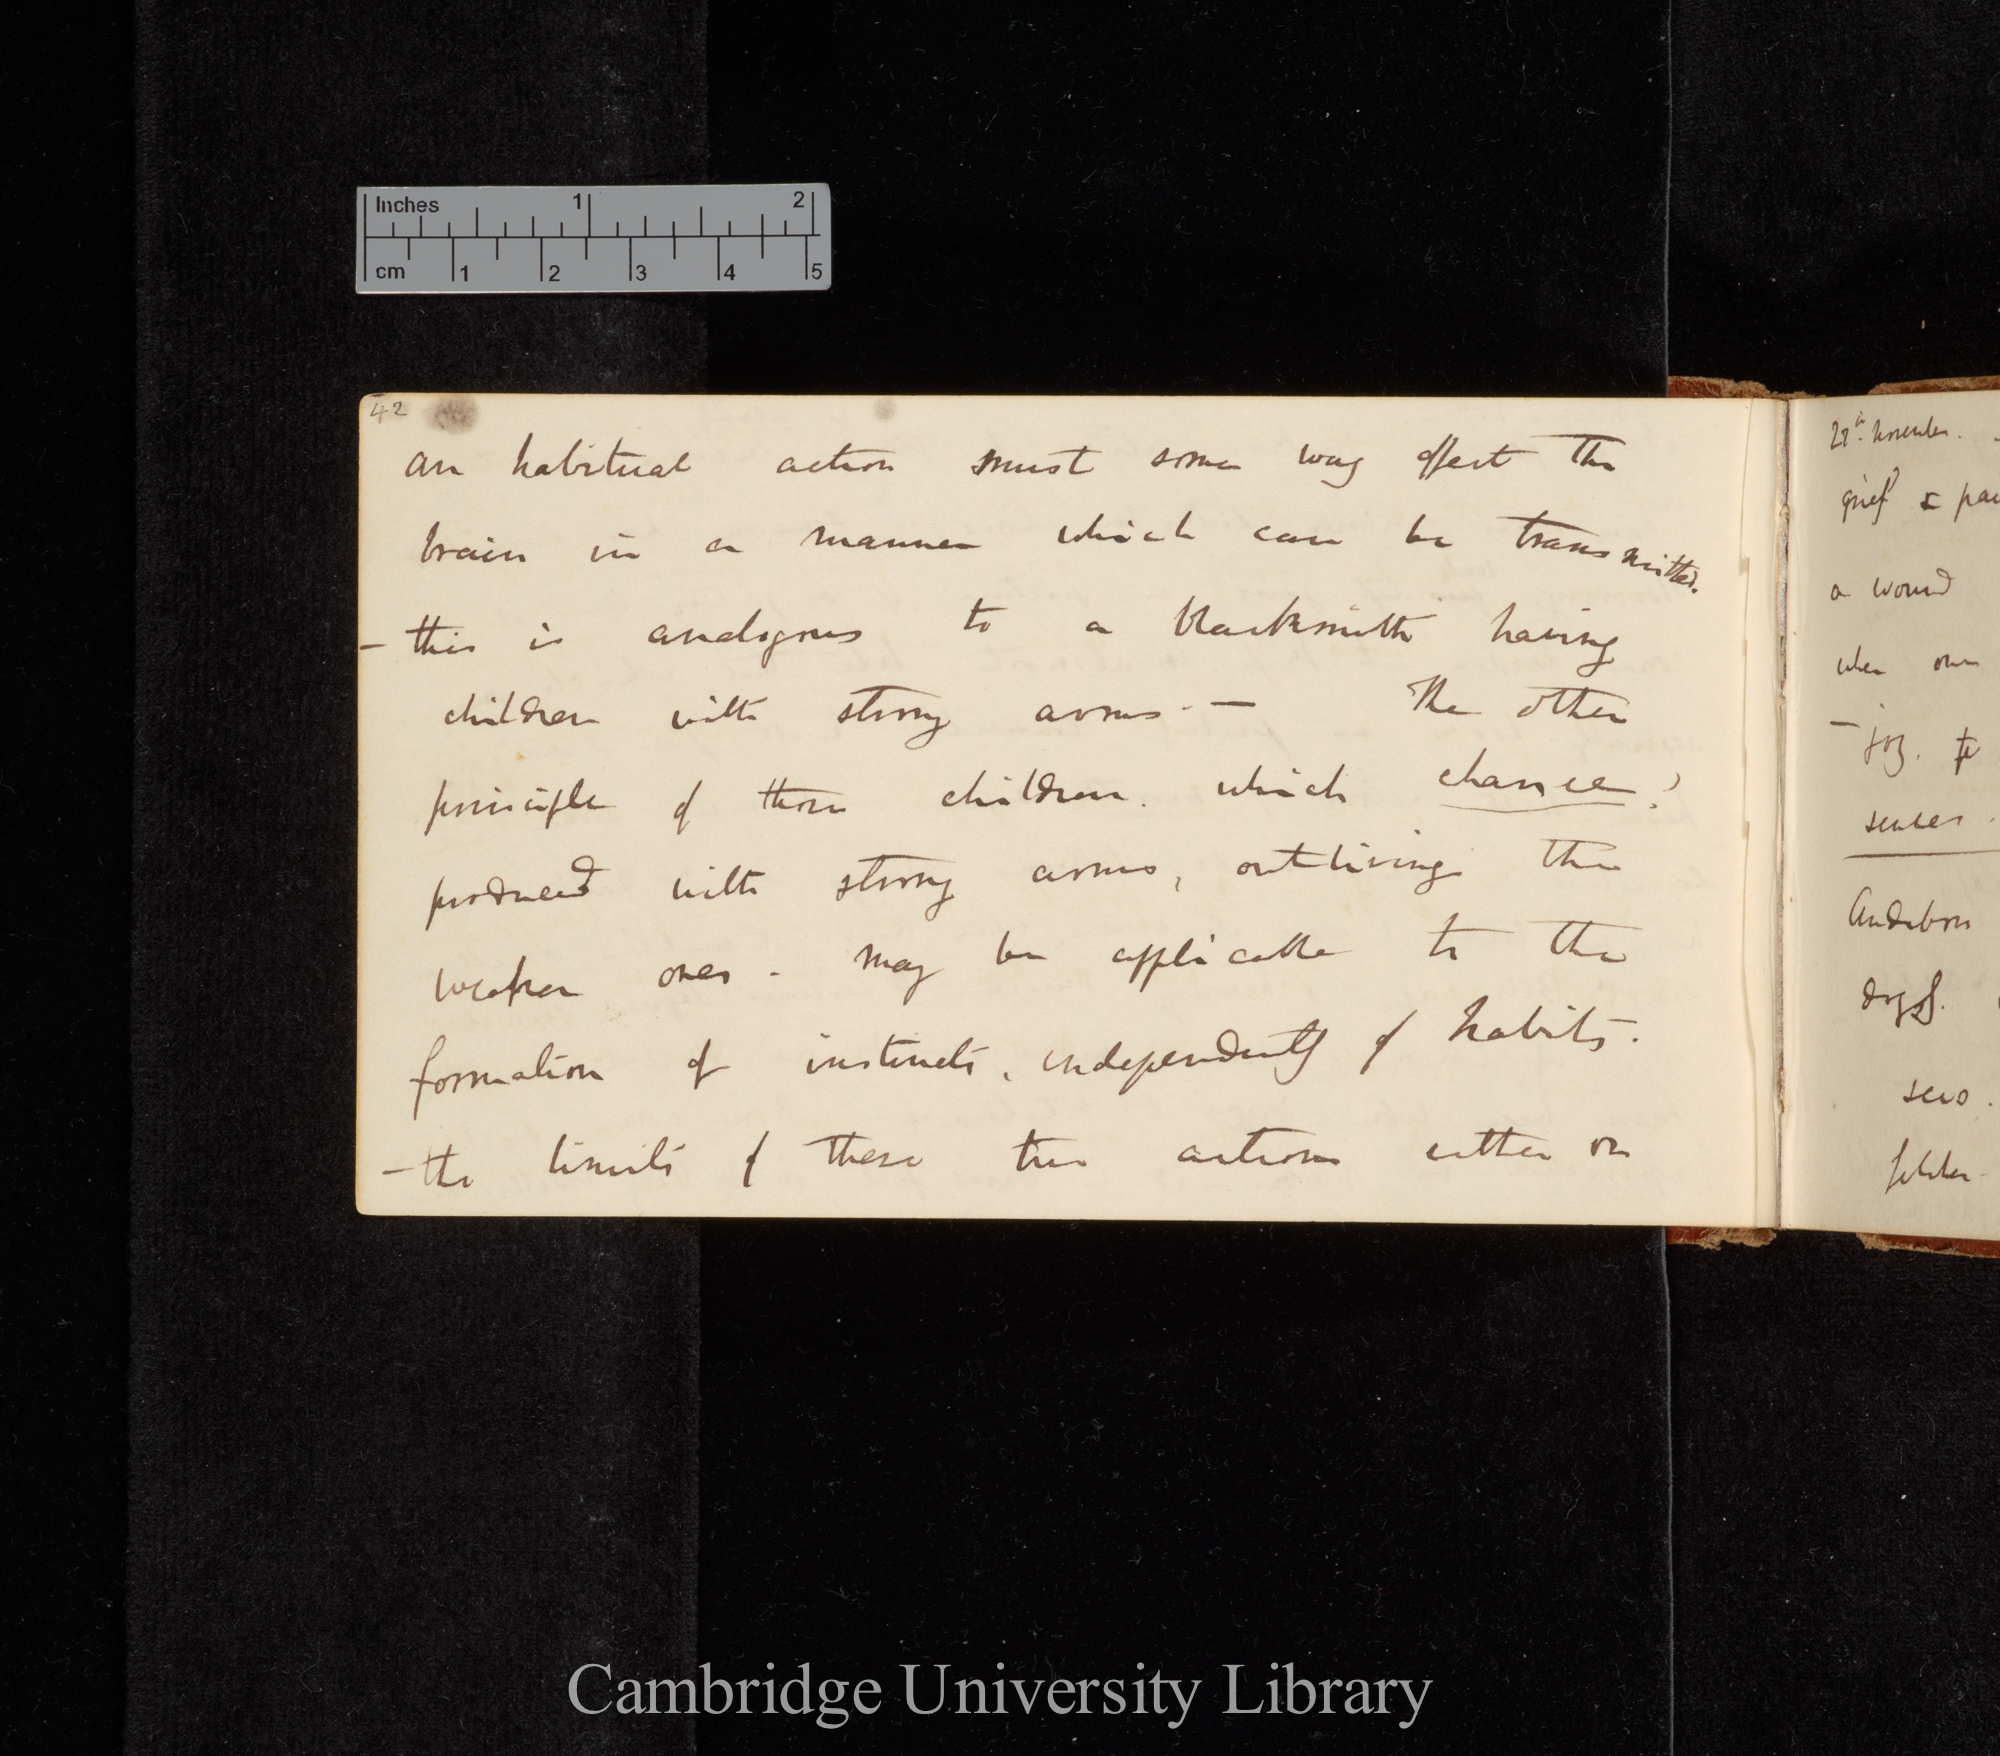 Inches 1 2
cm 1 2 3 4 5
42
an habitual action must some way affect the
brain in a manner which can be transmitted.
— this is analogous to a blacksmith having
children with strong arms. — The other
principle of those children. which chance?
produced with strong arms, outliving the
weaker ones. may be applicable to the
formation of instincts, independently of habits.
— the limits of these two actions either on
27th November. —
grief &
a wound
when one
— joy.
senses.
Audubon
dogs.
Cambridge University Library